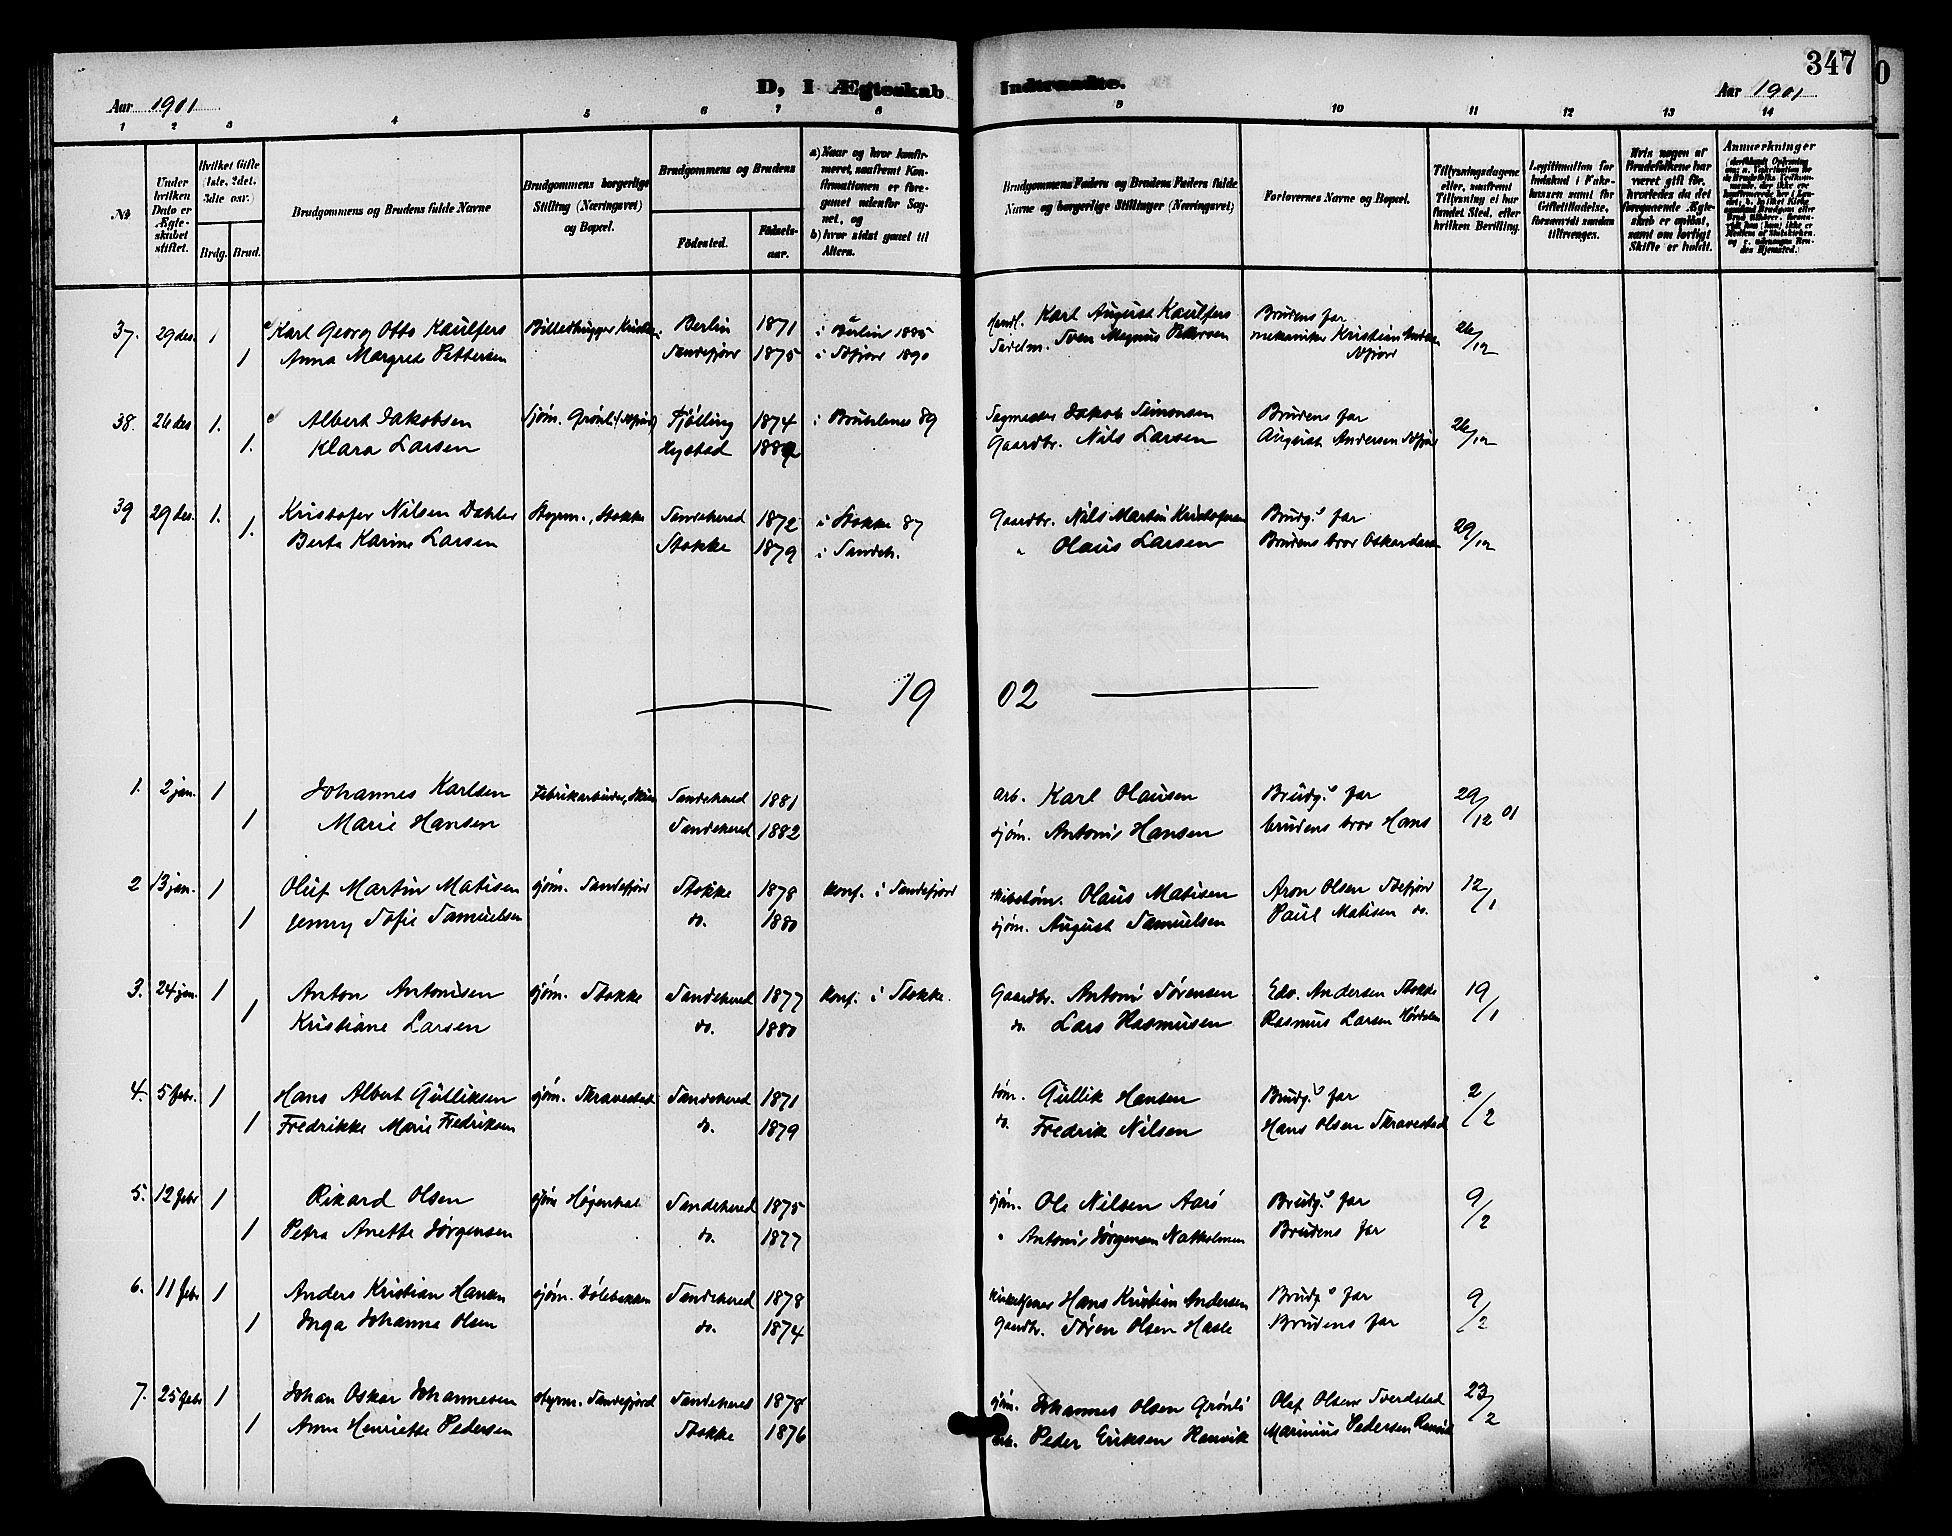 347
D, I Ægteskab Indtraadte.
Aar 1901 Aar 1901
1 2 3 4 5 6 7 8 9 10 11 12 13 14
№
Under hvilken Dato er Ægteskabet stiftet.
Hvilket Gifte (1ste, 2det, 3die osv.)
Brdg. Brud.
Brudgommens og Brudens fulde Navne
Brudgommens borgerlige Stilling (Næringsvei) og Bopæl.
Brudgommens og Brudens
Fødested. Fødselsaar.
a) Naar og hvor konfirmeret, saafremt Konfirmationen er foregaaet udenfor Sognet, og
b) hvor sidst gaaet til Alters.
Brudgommens Faders og Brudens Faders fulde Navne og borgerlige Stillinger (Næringsvei)
Forlovernes Navne og Bopæl.
Tillysningsdagene eller, saafremt Tillysning ei har fundet Sted, efter hvilken Bevilling.
Legitimation for Indskud i Enkekassen samt for Giftetilladelse, forsaavidt saadan tiltrænges.
Hvis nogen af Brudefolkene har været gift før, hvorledes da det foregaaende Ægteskab er opløst, samt om lovligt Skifte er holdt.
Anmerkninger
37. 29 des. 1 Karl Georg Otto Kaulfers Billedhugger Berlin 1871 i Berlin 1885 Karl August Kaulfers Brudens far 26/12
1 Anna Margrete Pettersen Sandefjord 1875 i Sdfjord 1890 Sven Magnus mekaniker Kristian
38. 26 des 1. Albert Jakobsen Sjøm. Grønli Tjølling 1874 i 89 Jakob Simonsen Brudens far 26/12
1. Klara Larsen Hystad Gaardbr. Nils Larsen August Andersen
39 29 des. 1. Kristofer Nilsen Dahler Styrm., Stokke Sandeherred 1872 i Stokke 87 Gaardbr. Nils Martin Kristofersen Brudg.s far 29/12
1. Berte Karine Larsen Stokke 1879 i Sandeh. " Olaus Larsen Brudens bror Oskar
1902
1. 2 jan. 1 Johannes Karlsen Fabrikarbeider, Sandeherred 1881 arb. Karl Olausen Brudg.s far 29/12 01
1 Marie Hansen Sandeherred 1882 sjøm. Antoni Hansen brudens bror Hans
2 13 jan. 1 Oluf Martin Matisen sjøm. Sandefjord Stokke 1878 konf. i Sandefjord Olaus Matisen Aron Olsen Sdefjord 12/1
1 Jenny Sofie Samuelsen do. 1880 sjøm. August Samuelsen Paul Matisen do.
3. 24 jan. 1 Anton Antonisen sjøm. Stokke Sandeherred 1877 konf. i Stokke. Gaardbr. Antoni Sørensen Edv. Andersen Stokke 19/1
1 Kristiane Larsen do. 1880 do. Lars Rasmusen Rasmus Larsen
4. 5 febr. 1 Hans Albert Gulliksen sjøm. Skravestad Sandeherred 1871 tøm. Gullik Hansen Brudg.s far 2/2
1 Fredrikke Marie Fredriksen do. 1879 do. Fredrik Nilsen Hans Olsen Skravestad
5. 12 febr 1 Rikard Olsen sjøm Sandeherred 1875 sjøm. Ole Nilsen Aarø Brudg.s far 9/2
1 Petra Anette Jørgensen do. 1877 " Antoni Jørgensen Natholmen Brudens far
6. 11 febr 1 Anders Kristian Hansen sjøm. Sandeherred 1878 Hans Kristian Andersen Brudg.s far 9/2
1 Inga Johanne Olsen do. 1874 Gaardbr. Søren Olsen Hasle Brudens far
7. 25 febr 1 Johan Oskar Johannesen styrm. Sandefjord Sandeherred 1878 sjøm. Johannes Olsen Grønli Olaf Olsen 23/2
1 Anne Henriette Pedersen Stokke 1876 Peder Eriksen Ranvik Marinius Pedersen Ranvik